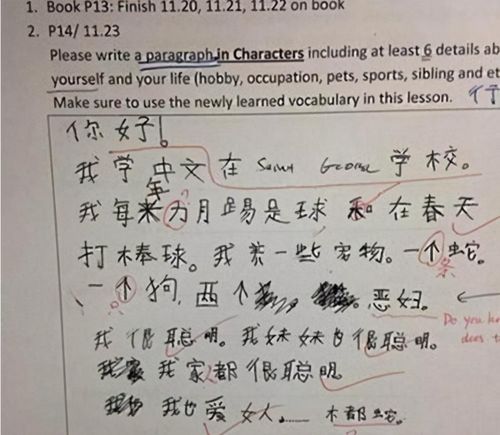 1. Book P13: Finish 11.20, 11.21, 11.22 on book
2. P14/ 11.23
Please write a paragraph in Characters including at least 6 details ab
yourself and your life (hobby, occupation, pets, sports, sibling and et
Make sure to use the newly learned vocabulary in this lesson.
你好!
我学中文在 Saint George 学校。
年
我每力月踢是球和在春天
打棒球。我养一些宠物。一个蛇。
条
一个狗,两个。恶妇。
Do you ha
does t
我很聪明。我妹妹也很聪明。
我家都很聪明
我也爱女人……